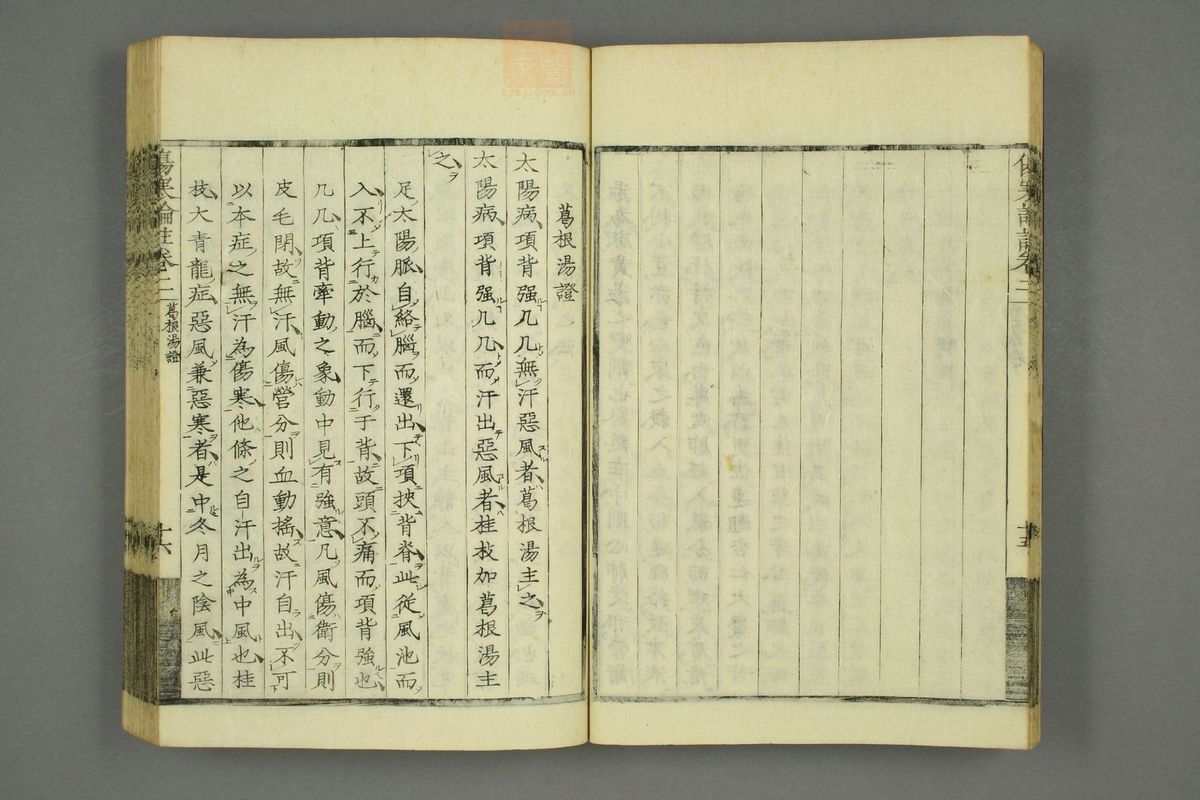 葛根湯證
太陽病項背强几几無汗惡風者葛根湯主之
太陽病項背强几几而汗出惡風者桂枝加葛根湯主
之
足太陽脈自絡腦而還出下項挾背脊此從風池而
入不上行於腦而下行于背故頭不痛而項背強也
几几項背牽動之象動中見有強意凡風傷衛分則
皮毛閉故無汗風傷營分則血動搖故汗自出不可
以本症之無汗為傷寒他條之自汗出為中風也桂
枝大青龍症惡風兼惡寒者是中冬月之陰風此惡
傷寒論註卷二
葛根湯證
十六
十五
ZYSJ.COM.CN